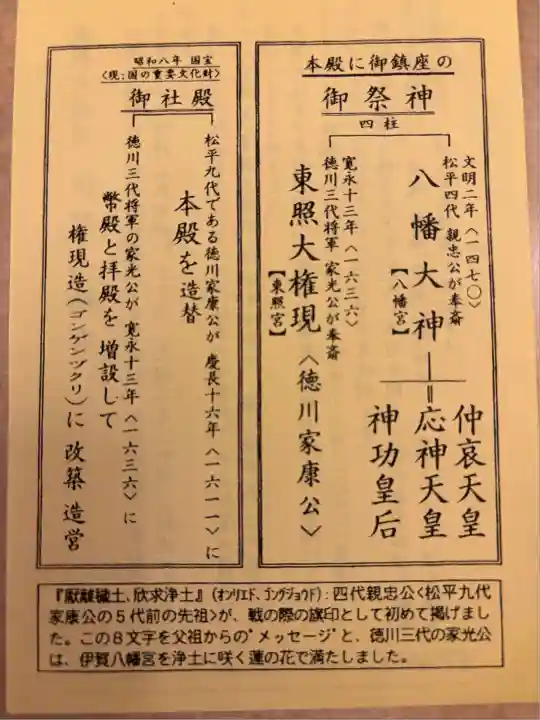 本殿に御鎮座の
御祭神
四柱
文明二年〈一四七〇〉
松平四代 親忠公が奉斎
八幡大神
【八幡宮】
仲哀天皇
応神天皇
神功皇后
寛永十三年〈一六三六〉
徳川三代将軍 家光公が奉斎
東照大権現〈徳川家康公〉
【東照宮】
昭和八年 国宝
〈現:国の重要文化財〉
御社殿
松平九代である徳川家康公が 慶長十六年〈一六一一〉に
本殿を造替
徳川三代将軍の家光公が 寛永十三年〈一六三六〉に
幣殿と拝殿を増設して
権現造(ゴンゲンヅクリ)に改築造営
『厭離穢土、欣求浄土』(オンリエド、ゴングジョウド):四代親忠公<松平九代
家康公の5代前の先祖>が、戦の際の旗印として初めて掲げまし
た。この8文字を父祖からの"メッセージ"と、徳川三代の家光公
は、伊賀八幡宮を浄土に咲く蓮の花で満たしました。